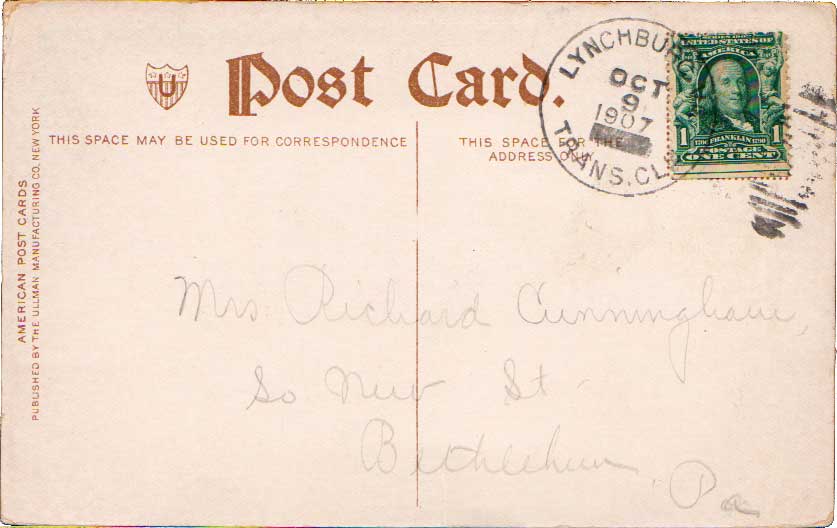 U
Post Card.
THIS SPACE MAY BE USED FOR CORRESPONDENCE
THIS SPACE FOR THE
ADDRESS ONLY
AMERICAN POST CARDS
PUBLISHED BY THE ULLMAN MANUFACTURING CO, NEW YORK
LYNCHBU
OCT
9
1907
TRANS. CL
SERIES 1902
UNITED STATES OF
AMERICA
1 1
1706 FRANKLIN 1790
POSTAGE
ONE CENT
Mrs Richard Cunningham,
So New St
Bethlehem, Pa